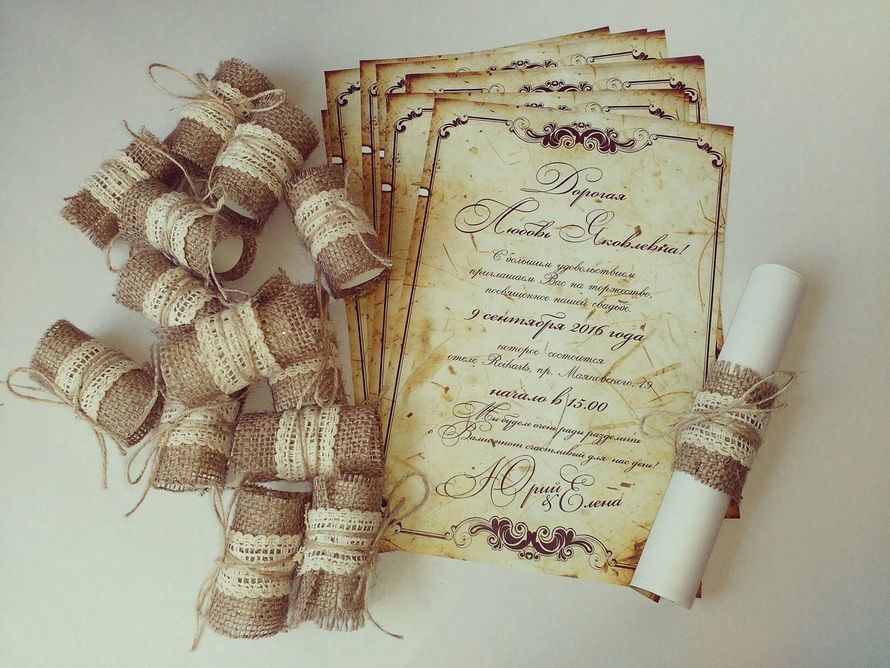 Дорогая
Любовь Яковлевна!
С большим удовольствием
приглашаем Вас на торжество,
посвященное нашей свадьбе.
9 сентября 2016 года
которое состоится
отеле Reikartz, пр. Маяковского, 79
начало в 15.00
Мы будем очень рады разделить
с Вами этот счастливый для нас день!
Юрий
& Елена